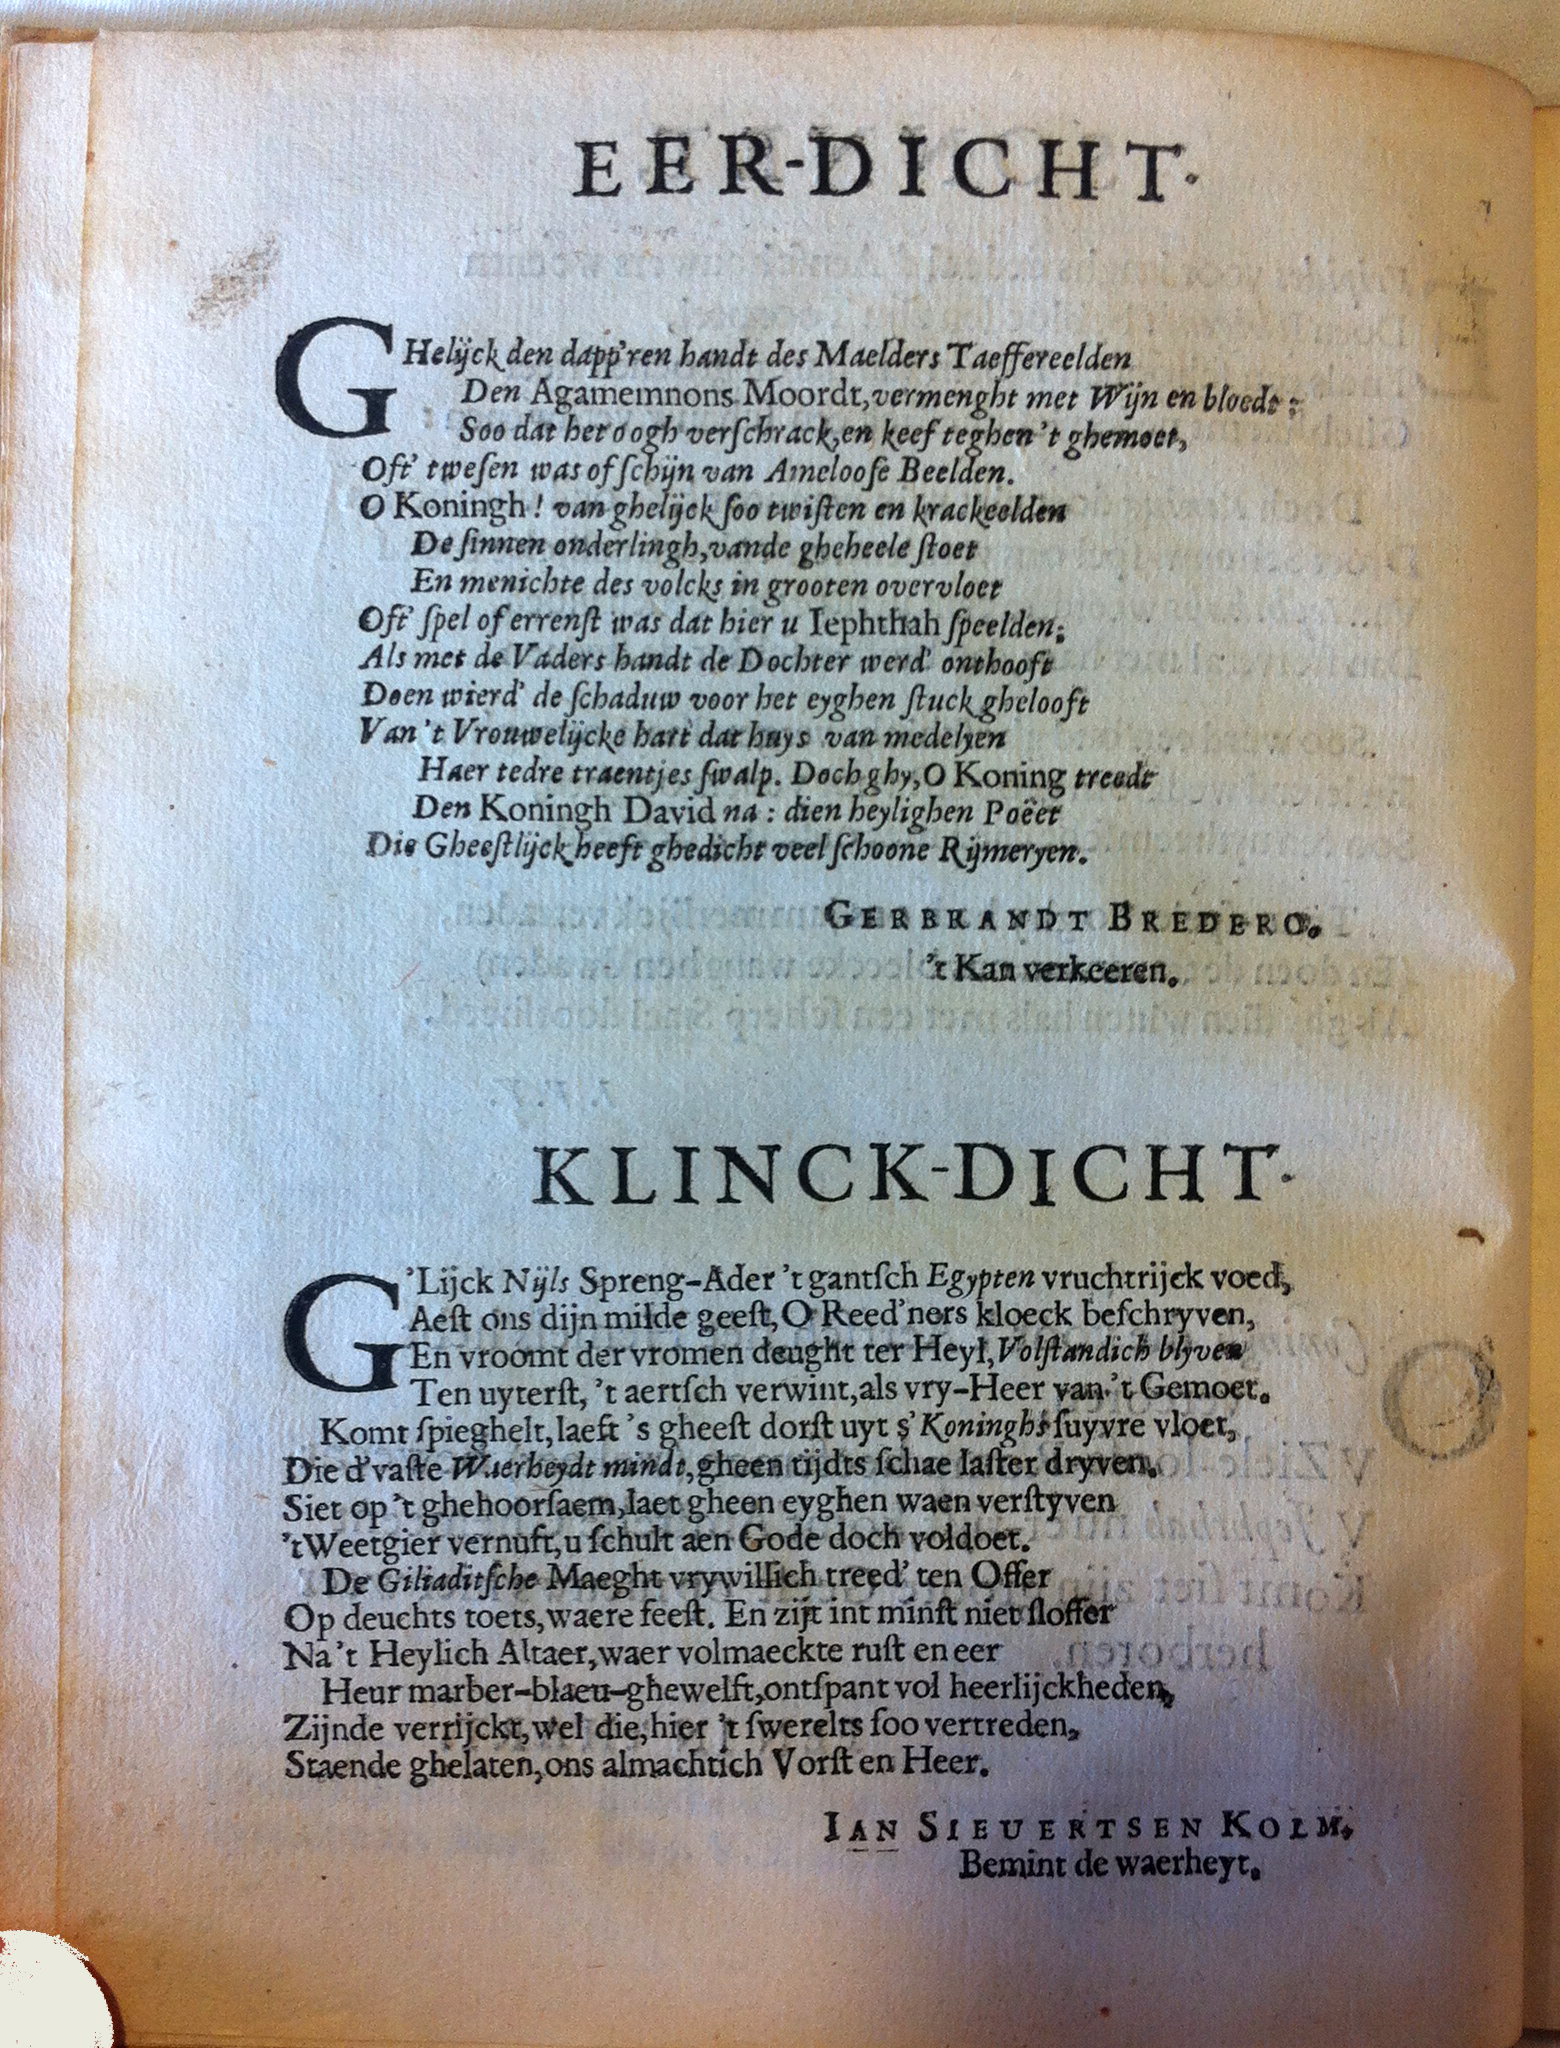 EER-DICHT.
GHelijck den dapp'ren handt des Maelders Taeffereelden
Den Agamemnons Moordt, vermenght met Wijn en bloedt:
Soo dat het oogh verſchrack, en keef teghen 't ghemoet,
Oft' tweſen was of ſchijn van Ameloоſe Beelden.
O Koningh! van ghelijck ſoo twiſten en krackeelden
De ſinnen onderlingh, vande gheheele ſtoet
En menichte des volcks in grooten overvloet
Oft' ſpel of errenſt was dat hier u Iephthah ſpeelden;
Als met de Vaders handt de Dochter werd' onthooft
Doen wierd' de ſchaduw voor het eyghen ſtuck ghelooft
Van 't Vrouwelijcke hart dat huys van medelyen
Haer tedre traentjes ſwalp. Doch ghy, O Koning treedt
Den Koningh David na: dien heylighen Poëet
Die Gheeſtlijck heeft ghedicht veel ſchoone Rijmeryen.
GERBRANDT BREDERO.
't Kan verkeeren.
KLINCK-DICHT.
G'Lijck Nijls Spreng-Ader 't gantſch Egypten vruchtrijck voed,
Aeſt ons dijn milde geeſt, O Reed'ners kloeck beſchryven,
En vroomt der vromen deught ter Heyl, Volſtandich blyven
Ten uyterſt, 't aertſch verwint, als vry-Heer van 't Gemoet.
Komt ſpieghelt, laeft 's gheeſt dorſt uyt s' Koninghs ſuyvre vloet,
Die d'vaſte Waerheydt mindt, gheen tijdts ſchae laſter dryven.
Siet op 't ghehoorſaem, laet gheen eyghen waen verſtyven
't Weetgier vernuft, u ſchult aen Gode doch voldoet.
De Giliaditſche Maeght vrywillich treed' ten Offer
Op deuchts toets, waere feeſt. En zijt int minſt niet ſloffer
Na 't Heylich Altaer, waer volmaeckte ruſt en eer
Heur marber-blaeu-ghewelft, ontſpant vol heerlijckheden,
Zijnde verrijckt, wel die, hier 't ſwerelts ſoo vertreden,
Staende ghelaten, ons almachtich Vorſt en Heer.
IAN SIEUERTSEN KOLM.
Bemint de waerheyt.